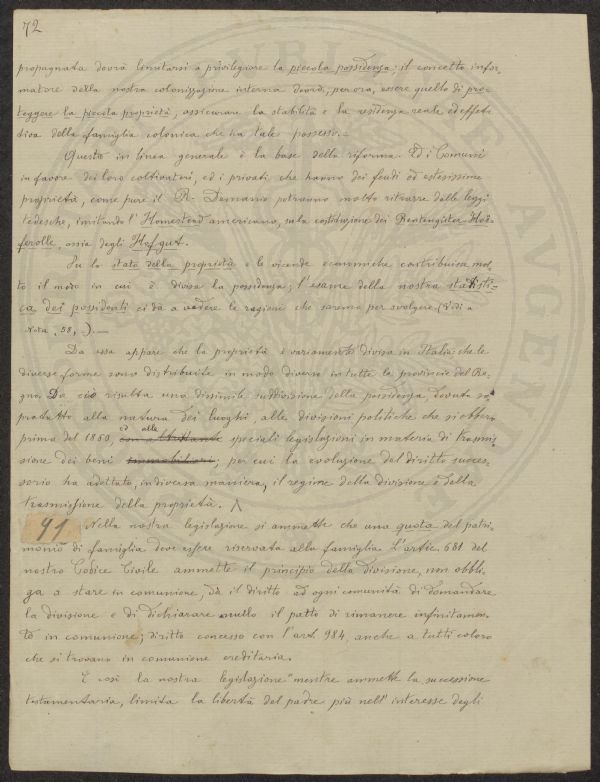 72
propugnata dovrà limitarsi a privilegiare la piccola possidenza; il concetto infor-
matore della nostra colonizzazione interna dovrà, per ora, essere quello di pro-
teggere la piccola proprietà, assicurare la stabilità e la residenza reale ed effet-
tiva della famiglia colonica che ha tale possesso.-
Questo in linea generale è la base della riforma. Ed i Comuni
in favore dei loro coltivatori, ed i privati che hanno dei feudi od estesissime
proprietà, come pure il R. Demanio potranno molto ritrarre dalle leggi
tedesche, imitando l'Homestead americano, su la costituzione dei
ferolle, ossia degli Hofgut.
Su lo stato della proprietà e le vicende economiche contribuisce mol-
to il modo in cui è divisa la possidenza; l'esame della nostra statisti-
ca dei possidenti ci dà a vedere le ragioni che saremo per svolgere (Vedi a
Nota, 58,).—
Da essa appare che la proprietà è variamente divisa in Italia; che le
diverse forme sono distribuite in modo diverso in tutte le provincie del Re-
gno. Da ciò risulta una dissimile suddivisione della possidenza, dovuta so-
pratutto alla natura dei luoghi, alle divisioni politiche che si ebbero
prima del 1860, ed alle speciali legislazioni in materia di trasmis-
sione dei beni immobiliari; per cui la evoluzione del diritto succes-
sorio ha adottato, in diversa maniera, il regime della divisione e della
trasmissione della proprietà.
91 Nella nostra legislazione si ammette che una quota del patri-
monio di famiglia deve essere riservata alla famiglia. L'artic. 681 del
nostro Codice Civile ammette il principio della divisione, non obbli-
ga a stare in comunione, dà il diritto ad ogni comunità di domandare
la divisione e di dichiarare nullo il patto di rimanere infinitamen-
te in comunione; diritto concesso con l'art 984, anche a tutti coloro
che si trovano in comunione ereditaria.
E così la nostra legislazione "mentre ammette la successione
testamentaria, limita la libertà del padre più nell'interesse degli